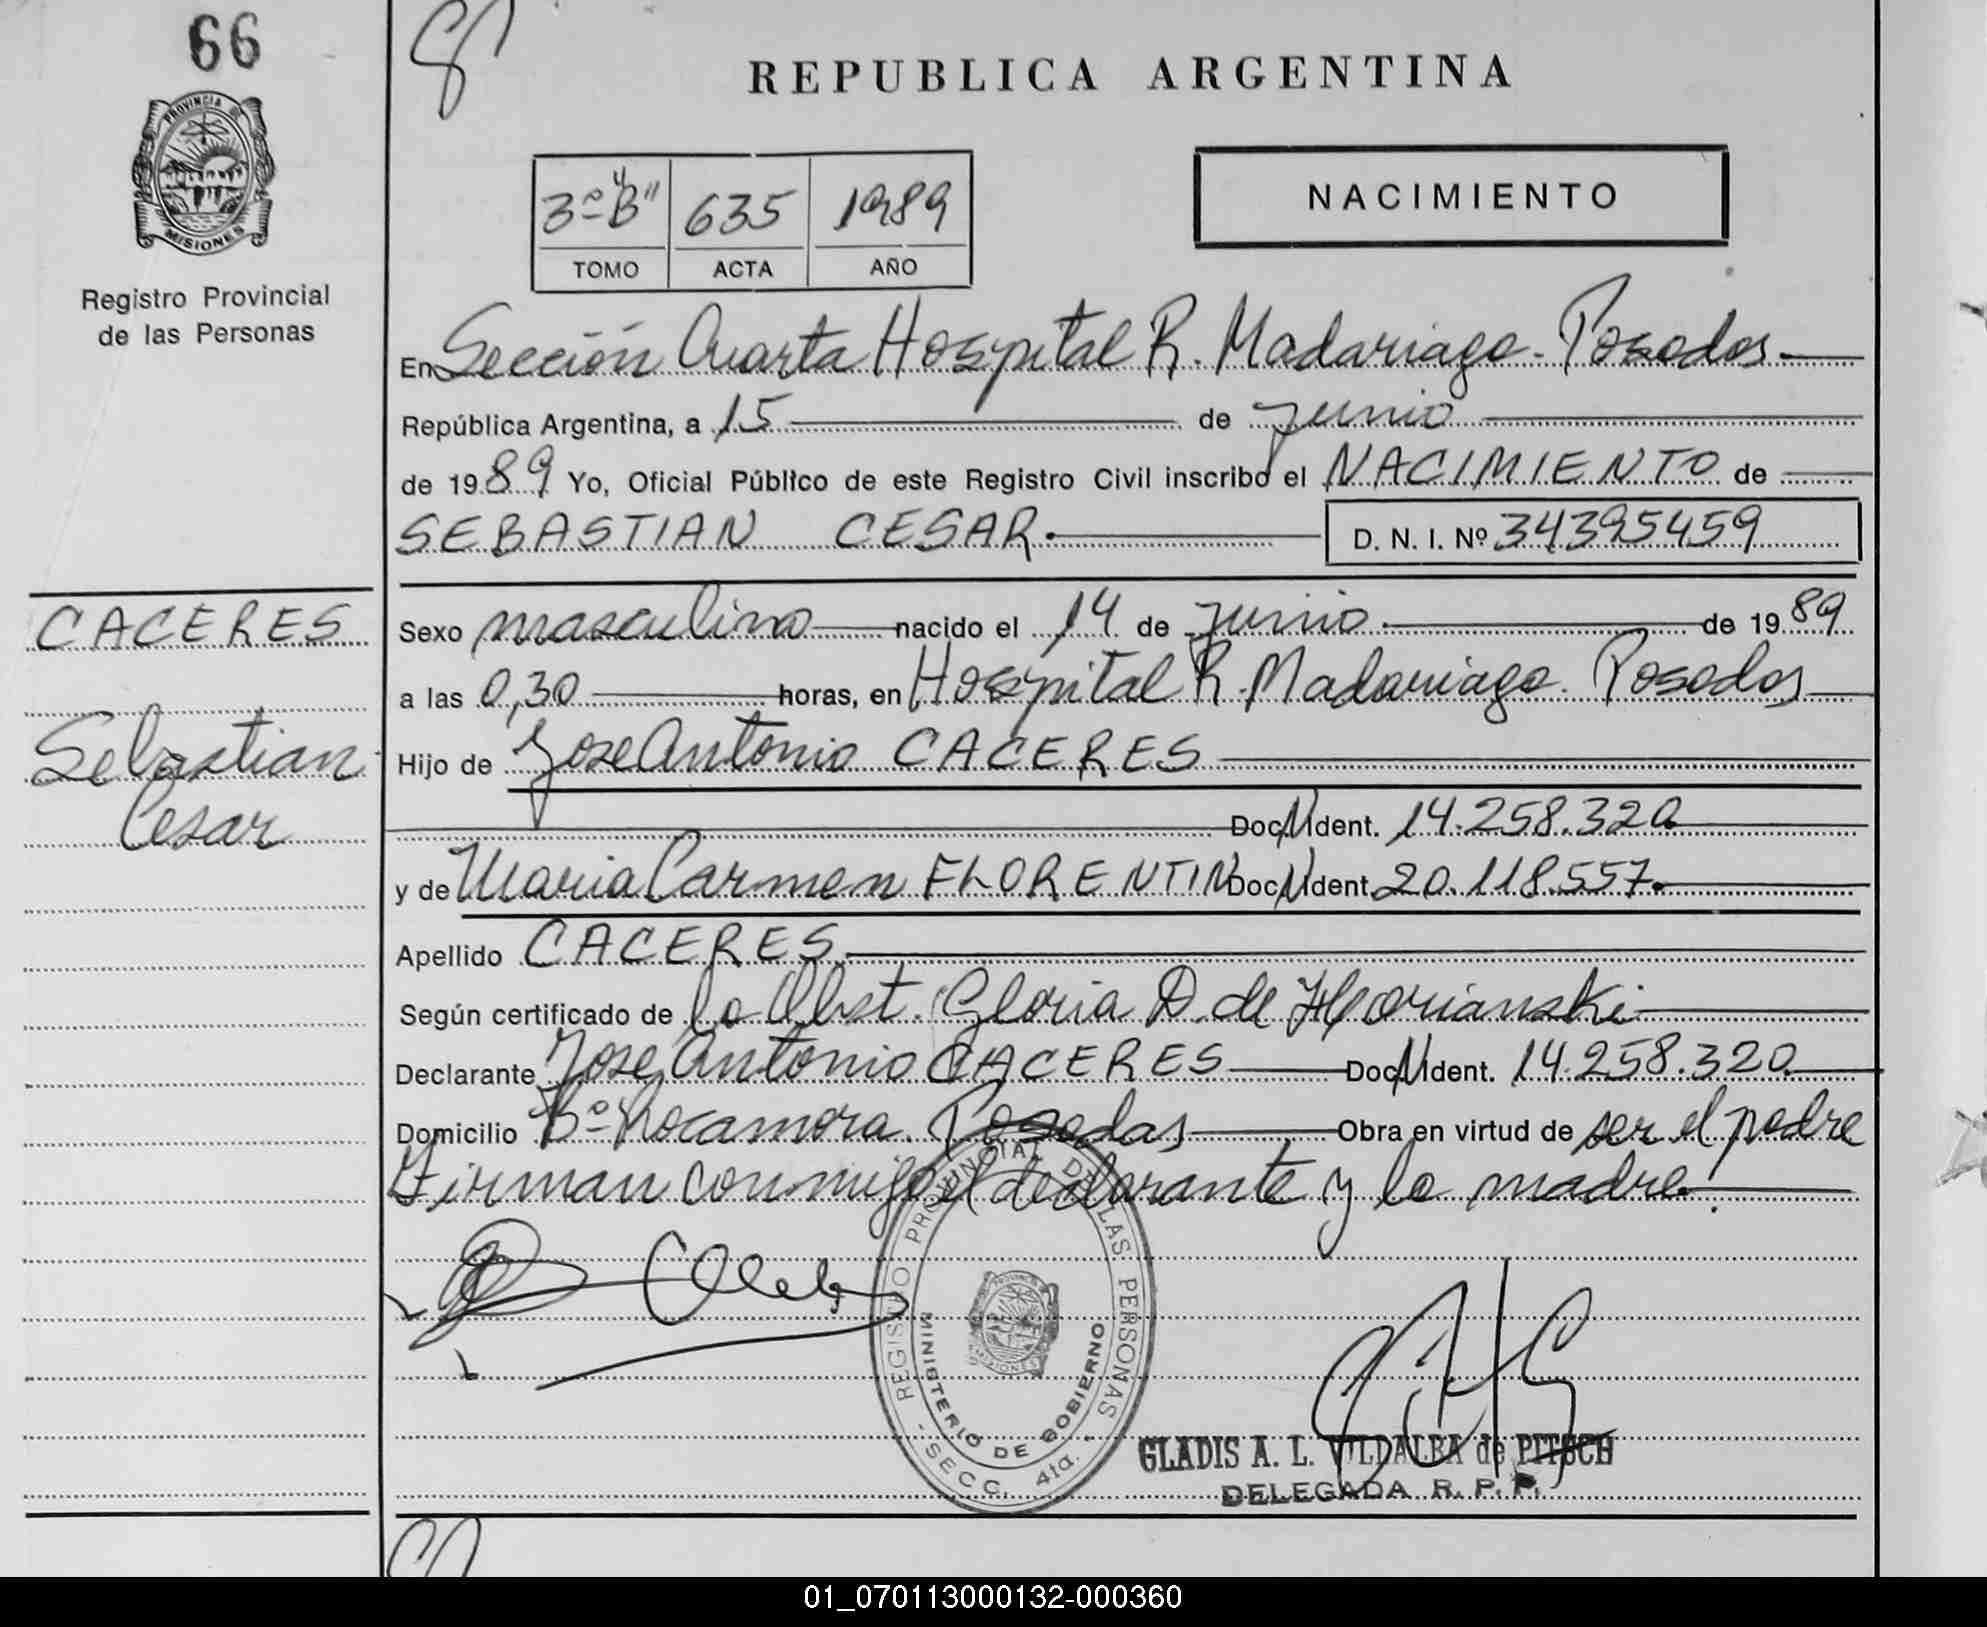 66
PROVINCIA DE
MISIONES
Registro Provincial
de las Personas
REPUBLICA ARGENTINA
3º "B" 635 1989
TOMO ACTA AÑO
NACIMIENTO
En Sección Cuarta Hospital R. Madariaga - Posadas
República Argentina, a 15 de junio
de 1989 Yo, Oficial Público de este Registro Civil inscribo el NACIMIENTO de
SEBASTIAN CESAR.
D. N. I. Nº 34395459
CACERES
Sebastian
Cesar
Sexo masculino nacido el 14 de junio de 1989
a las 0,30 horas, en Hospital R. Madariaga. Posadas
Hijo de Jose Antonio CACERES
Doc. N Ident. 14.258.320
y de Maria Carmen FLORENTIN Doc. N Ident. 20.118.557.
Apellido CACERES
Según certificado de la Obst. Gloria D. de
Declarante Jose Antonio CACERES Doc. N Ident. 14.258.320
Domicilio Bº Rocamora. Posadas Obra en virtud de ser el padre
Firman conmigo el declarante y la madre.
REGISTRO PROVINCIAL DE LAS PERSONAS
MINISTERIO DE GOBIERNO
- SECC. 4ta. -
GLADIS A. L. VILLALBA de PITSCH
DELEGADA R. P. P.
01_070113000132-000360